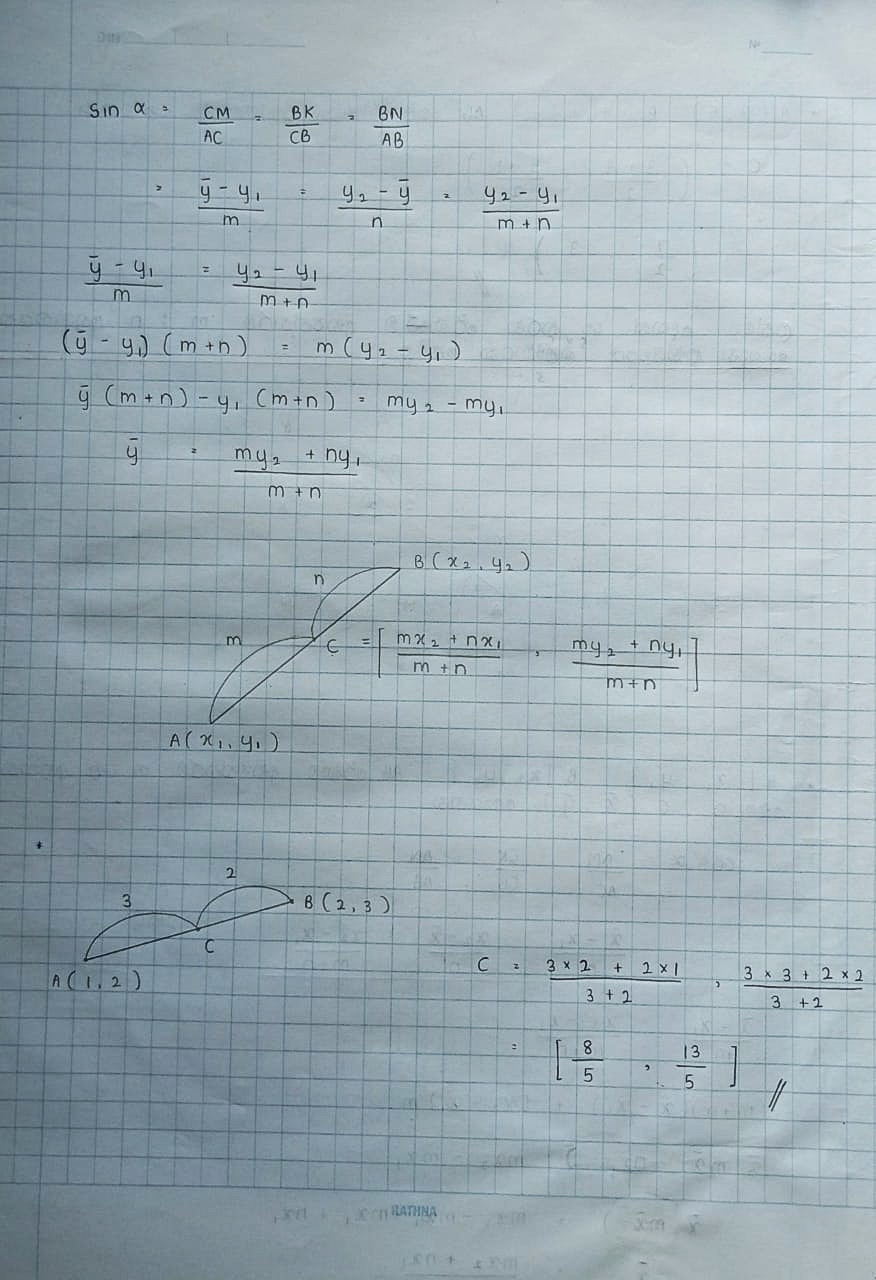 Sin α = CM/AC = BK/CB = BN/AB
= (ȳ - y₁)/m = (y₂ - ȳ)/n = (y₂ - y₁)/(m + n)
(ȳ - y₁)/m = (y₂ - y₁)/(m + n)
(ȳ - y₁) (m + n) = m (y₂ - y₁)
ȳ (m + n) - y₁ (m + n) = my₂ - my₁
ȳ = (my₂ + ny₁)/(m + n)
B (x₂, y₂)
n
m
C = [(mx₂ + nx₁)/(m + n) , (my₂ + ny₁)/(m + n)]
A (x₁, y₁)
*
2
3
B (2, 3)
C
A (1, 2)
C = (3 × 2 + 2 × 1)/(3 + 2) , (3 × 3 + 2 × 2)/(3 + 2)
= [8/5 , 13/5] //
RATHNA